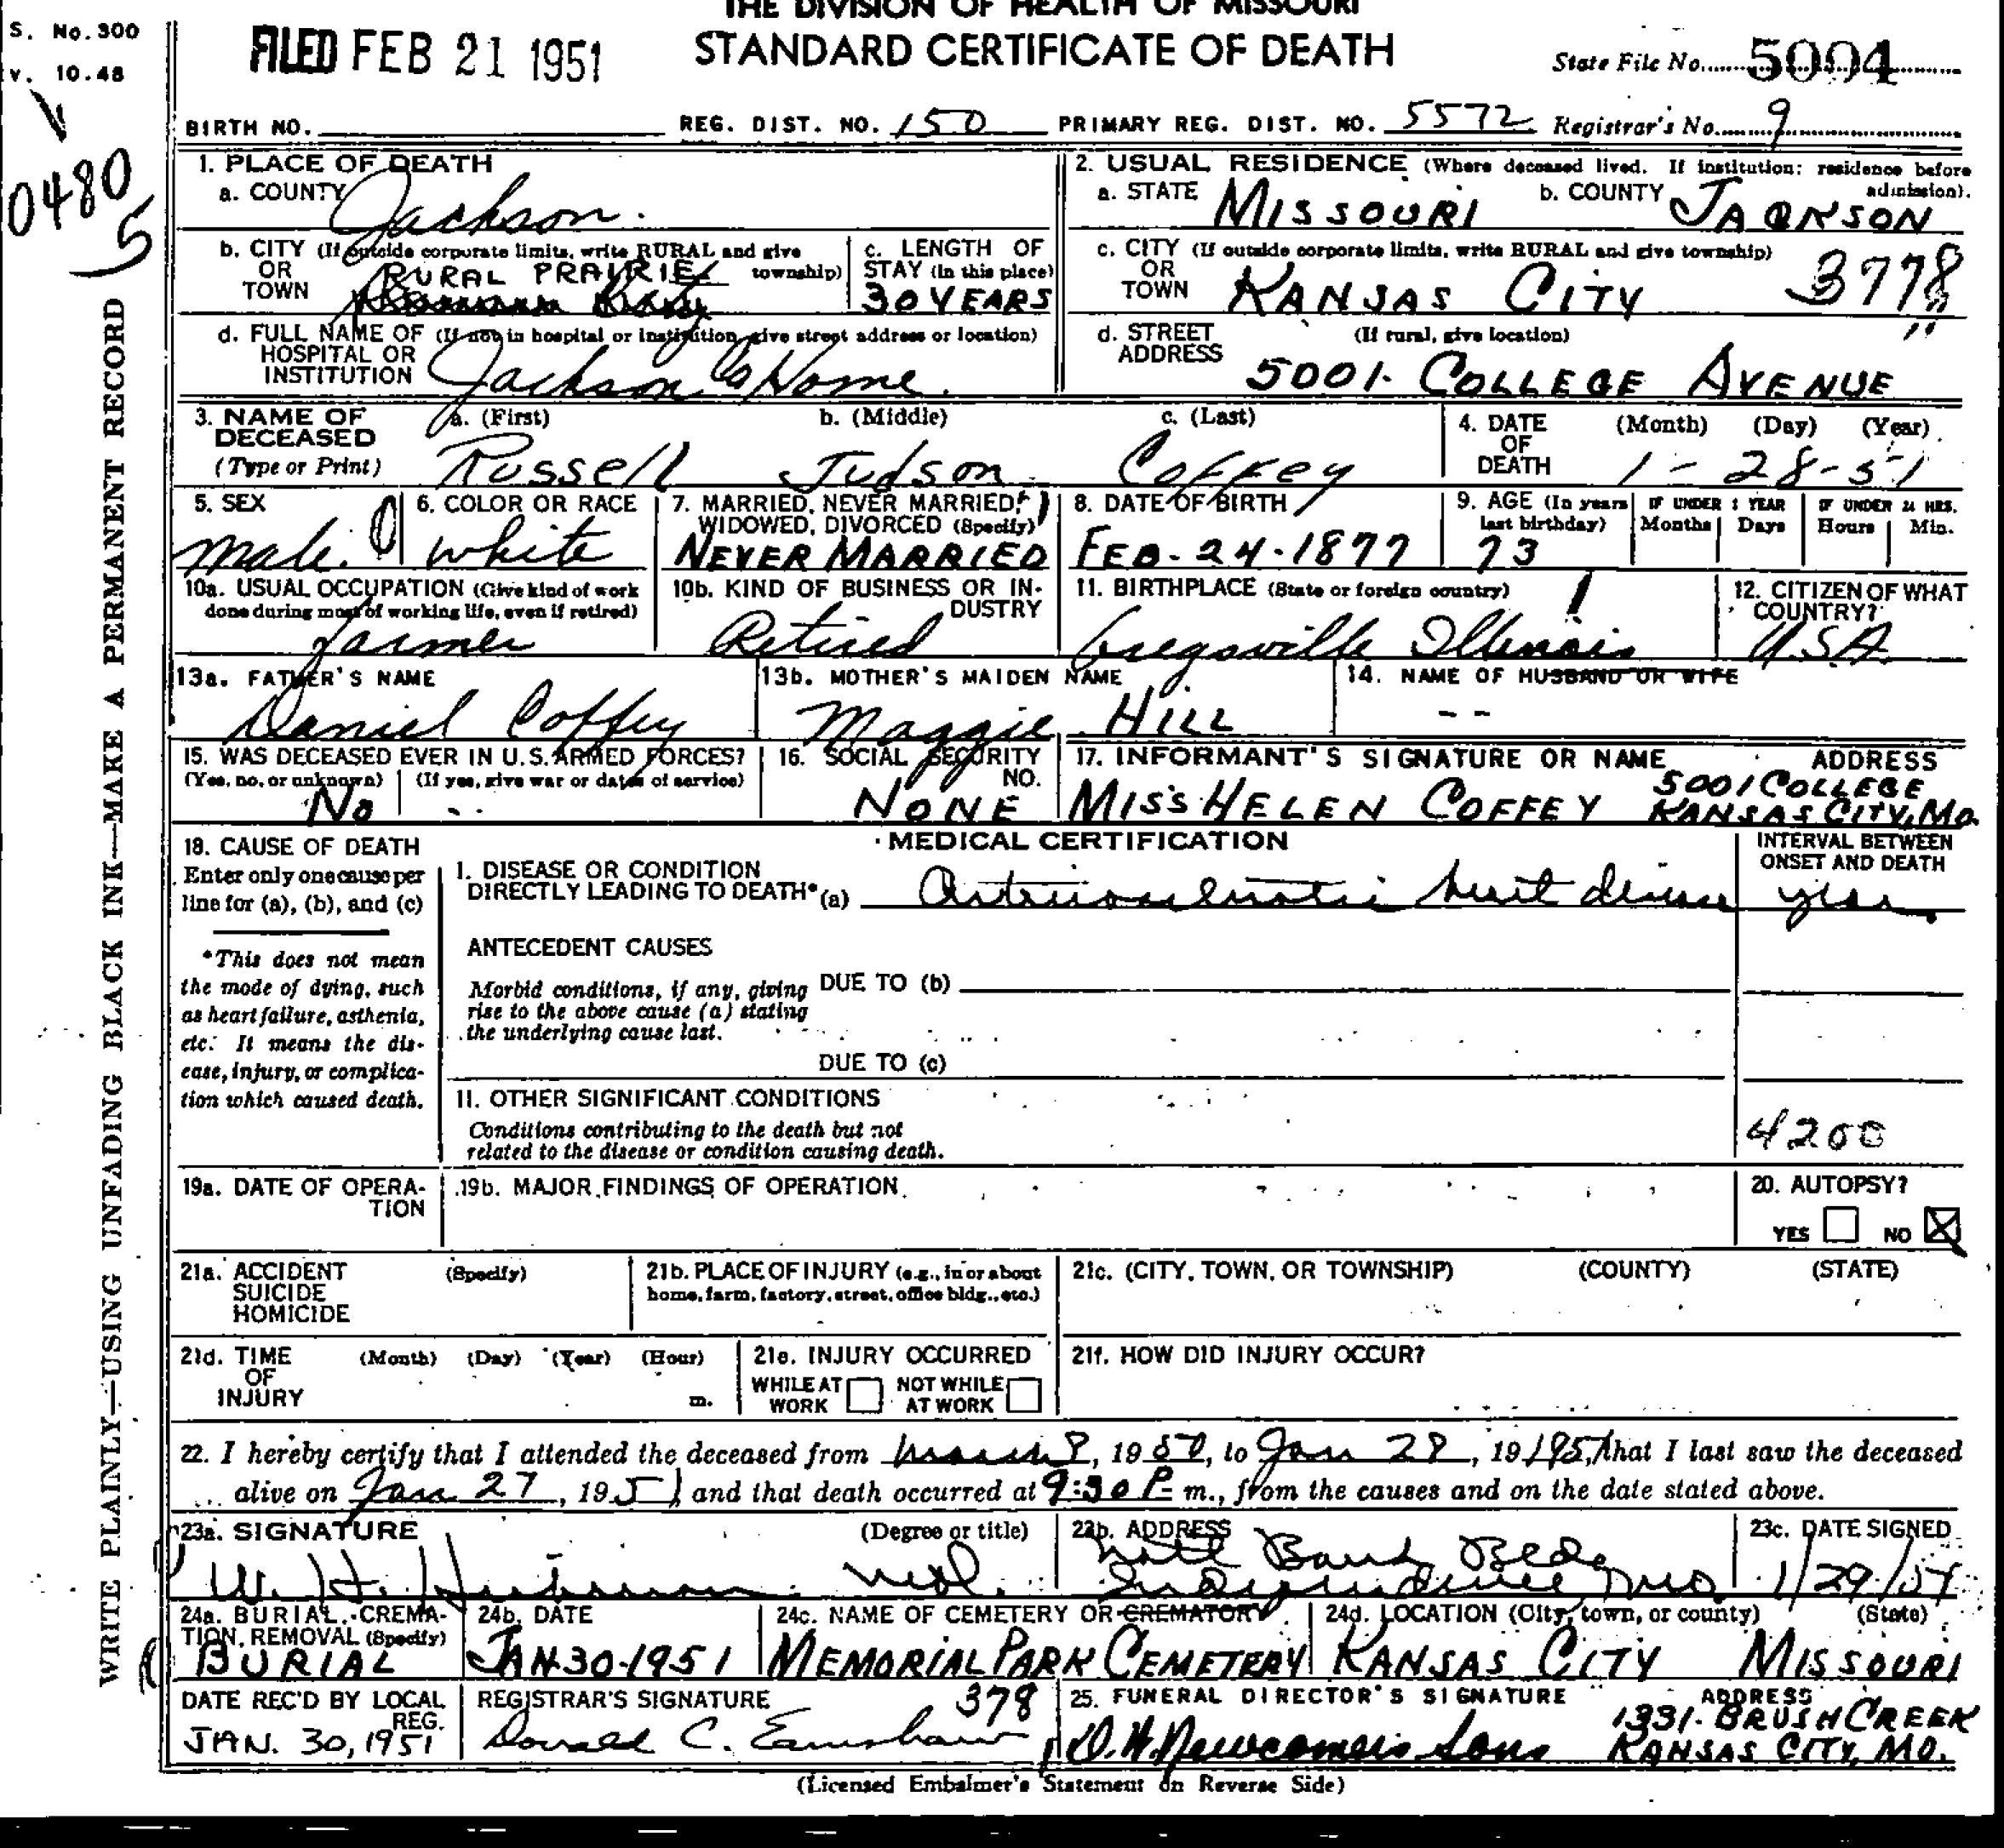 THE DIVISION OF HEALTH OF MISSOURI
S. No. 300
v. 10.48
FILED FEB 21 1951
STANDARD CERTIFICATE OF DEATH
State File No. 5094
BIRTH NO.
REG. DIST. NO. 150
PRIMARY REG. DIST. NO. 5572
Registrar's No. 9
0480
5
WRITE PLAINLY—USING UNFADING BLACK INK—MAKE A PERMANENT RECORD
1. PLACE OF DEATH
a. COUNTY Jackson
b. CITY (If outside corporate limits, write RURAL and give township)
OR
TOWN
RURAL PRAIRIE
c. LENGTH OF
STAY (in this place)
30 YEARS
d. FULL NAME OF (If not in hospital or institution, give street address or location)
HOSPITAL OR
INSTITUTION
Jackson Co Home.
2. USUAL RESIDENCE (Where deceased lived. If institution: residence before admission).
a. STATE MISSOURI
b. COUNTY JACKSON
c. CITY (If outside corporate limits, write RURAL and give township)
OR
TOWN KANSAS CITY 3778
d. STREET (If rural, give location)
ADDRESS
5001. COLLEGE AVENUE
3. NAME OF DECEASED
(Type or Print)
a. (First) b. (Middle) c. (Last)
Russell Judson Coffey
4. DATE OF DEATH (Month) (Day) (Year)
1-28-51
5. SEX
male.
6. COLOR OR RACE
white
7. MARRIED, NEVER MARRIED,
WIDOWED, DIVORCED (Specify)
NEVER MARRIED
8. DATE OF BIRTH
FEB-24-1877
9. AGE (In years last birthday)
73
IF UNDER 1 YEAR
Months Days
IF UNDER 24 HRS.
Hours Min.
10a. USUAL OCCUPATION (Give kind of work
done during most of working life, even if retired)
farmer
10b. KIND OF BUSINESS OR INDUSTRY
Retired
11. BIRTHPLACE (State or foreign country)
Illinois
12. CITIZEN OF WHAT COUNTRY?
U.S.A.
13a. FATHER'S NAME
Daniel Coffey
13b. MOTHER'S MAIDEN NAME
Maggie HILL
14. NAME OF HUSBAND OR WIFE
--
15. WAS DECEASED EVER IN U.S. ARMED FORCES?
(Yes, no, or unknown) (If yes, give war or dates of service)
No --
16. SOCIAL SECURITY NO.
NONE
17. INFORMANT'S SIGNATURE OR NAME ADDRESS
MISS HELEN COFFEY 5001 COLLEGE
KANSAS CITY, MO.
18. CAUSE OF DEATH
Enter only one cause per
line for (a), (b), and (c)
*This does not mean
the mode of dying, such
as heart failure, asthenia,
etc. It means the dis-
ease, injury, or complica-
tion which caused death.
MEDICAL CERTIFICATION
INTERVAL BETWEEN ONSET AND DEATH
I. DISEASE OR CONDITION
DIRECTLY LEADING TO DEATH* (a) Arteriosclerotic heart disease yrs.
ANTECEDENT CAUSES
Morbid conditions, if any, giving
rise to the above cause (a) stating
the underlying cause last.
DUE TO (b)
DUE TO (c)
II. OTHER SIGNIFICANT CONDITIONS
Conditions contributing to the death but not
related to the disease or condition causing death.
4200
19a. DATE OF OPERATION
19b. MAJOR FINDINGS OF OPERATION
20. AUTOPSY?
YES NO X
21a. ACCIDENT
SUICIDE
HOMICIDE
(Specify)
21b. PLACE OF INJURY (e.g., in or about
home, farm, factory, street, office bldg., etc.)
21c. (CITY, TOWN, OR TOWNSHIP) (COUNTY) (STATE)
21d. TIME OF INJURY (Month) (Day) (Year) (Hour) m.
21e. INJURY OCCURRED
WHILE AT WORK NOT WHILE AT WORK
21f. HOW DID INJURY OCCUR?
22. I hereby certify that I attended the deceased from March 8, 1950, to Jan 28, 19 1951, that I last saw the deceased
alive on Jan 27, 1951, and that death occurred at 9:30 P. m., from the causes and on the date stated above.
23a. SIGNATURE (Degree or title)
W. H. M.D.
23b. ADDRESS
Natl Bank Bldg
Independence Mo.
23c. DATE SIGNED
1/29/51
24a. BURIAL, CREMATION, REMOVAL (Specify)
BURIAL
24b. DATE
JAN-30-1951
24c. NAME OF CEMETERY OR CREMATORY
MEMORIAL PARK CEMETERY
24d. LOCATION (City, town, or county) (State)
KANSAS CITY MISSOURI
DATE REC'D BY LOCAL REG.
JAN. 30, 1951
REGISTRAR'S SIGNATURE 378
Donald C. Earnshaw
25. FUNERAL DIRECTOR'S SIGNATURE ADDRESS
D.W. Newcomer's Sons 1331. BRUSH CREEK
KANSAS CITY, MO.
(Licensed Embalmer's Statement on Reverse Side)